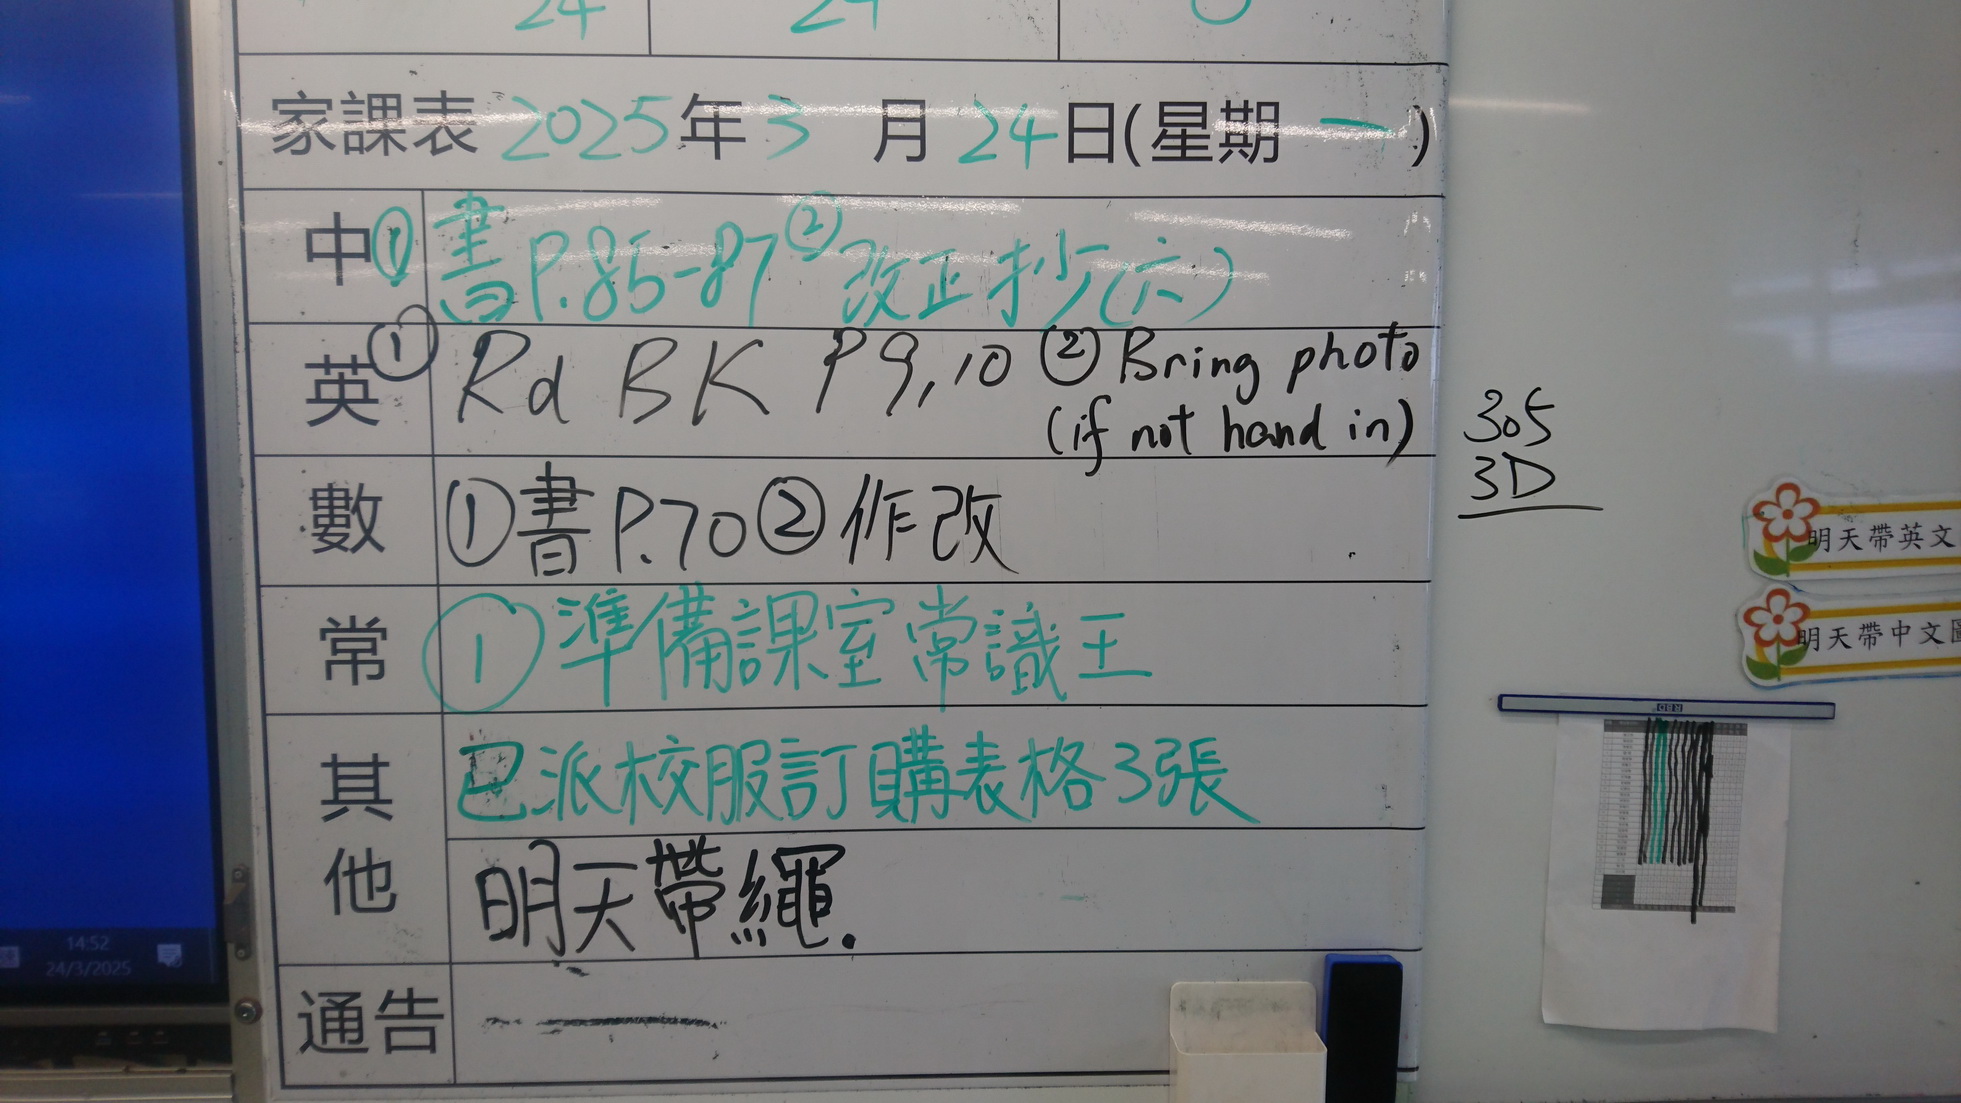 24 24
家課表 2025年3月24日(星期一)
中 ① 書P.85-87 ② 改正抄(六)
英 ① Rd BK P9,10 ② Bring photo
(if not hand in)
數 ①書P.70②作改
常 ①準備課室常識王
其他 已派校服訂購表格3張
明天帶繩.
通告
305
3D
明天帶英文
明天帶中文圖
14:52
24/3/2025